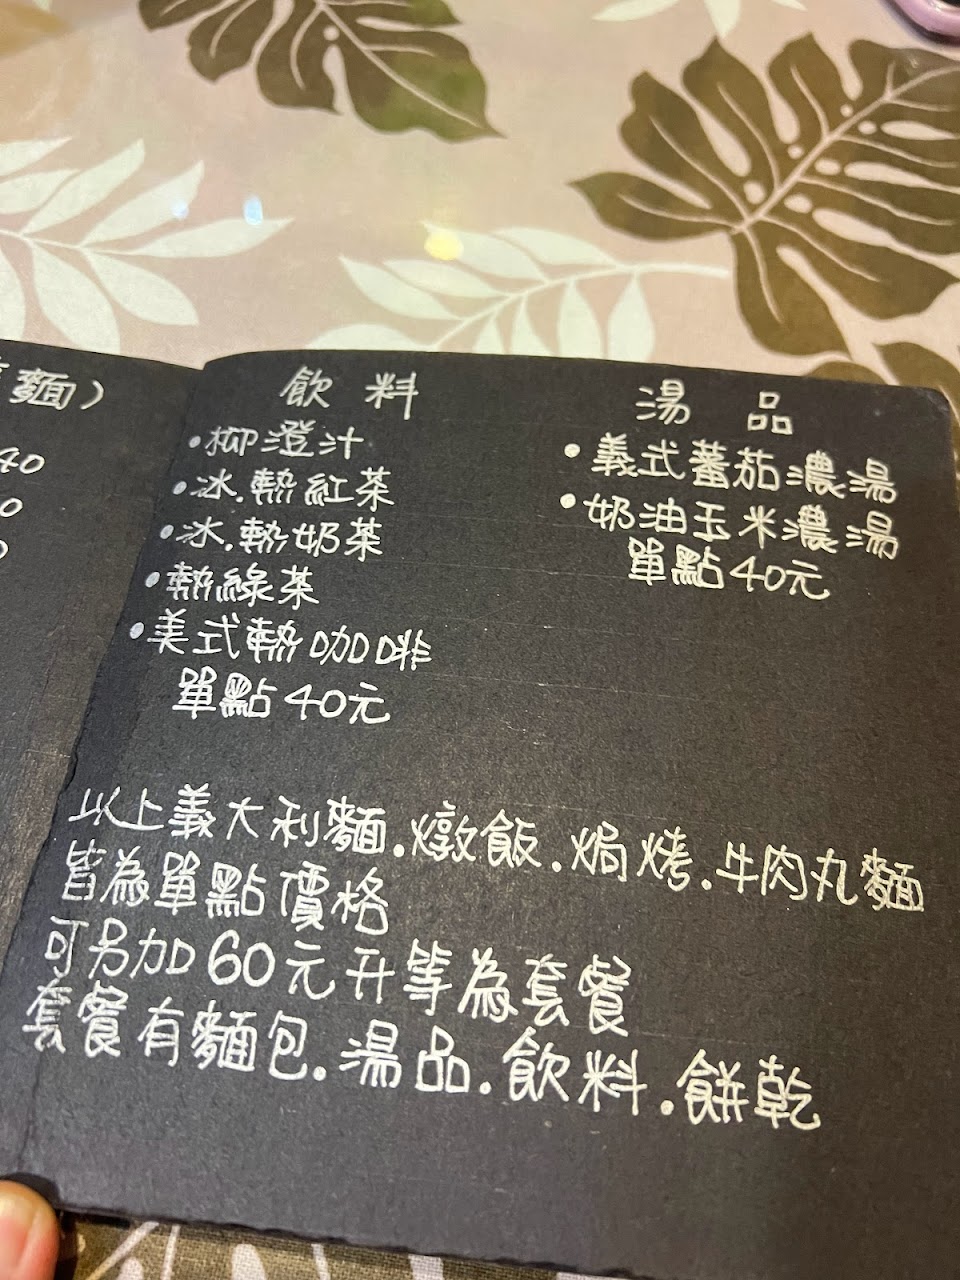 麵)
40
0
飲料
•柳澄汁
•冰.熱紅茶
•冰.熱奶茶
•熱綠茶
•美式熱咖啡
單點40元
湯品
•義式蕃茄濃湯
•奶油玉米濃湯
單點40元
以上義大利麵.燉飯.焗烤.牛肉丸麵
皆為單點價格
可另加60元升等為套餐
套餐有麵包.湯品.飲料.餅乾